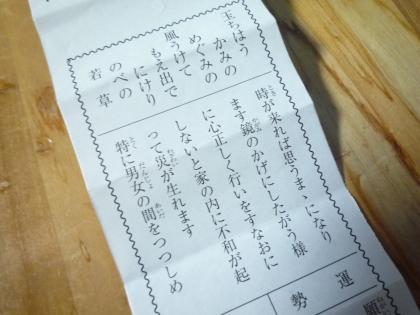 玉ちはう
かみの
めぐみの
風うけて
もえ出で
にけり
のべの
若草
時が来れば思うまゝになり
ます鏡のかげにしたがう様
に心正しく行いをすなおに
しないと家の内に不和が起
って災が生れます
特に男女の間をつつしめ
運勢
願